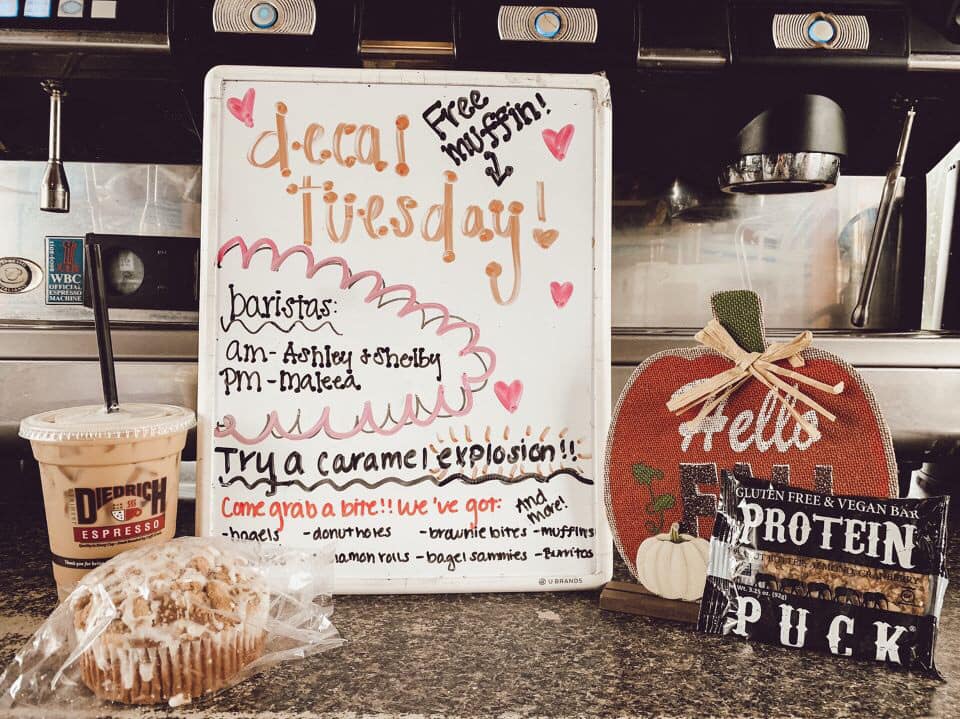 decal
tuesday!
Free
muffin!
baristas:
am - Ashley & Shelby
PM - maleea
Try a caramel explosion!!
Come grab a bite!! We've got:
And
more!
-bagels -donut holes -brownie bites -muffins
namon rolls -bagel sammies -Burritos
U BRANDS
WBC
OFFICIAL
ESPRESSO
MACHINE
DIEDRICH
ESPRESSO
Hello
FALL
GLUTEN FREE & VEGAN BAR
PROTEIN
ALMOND CRANBERRY
PUCK